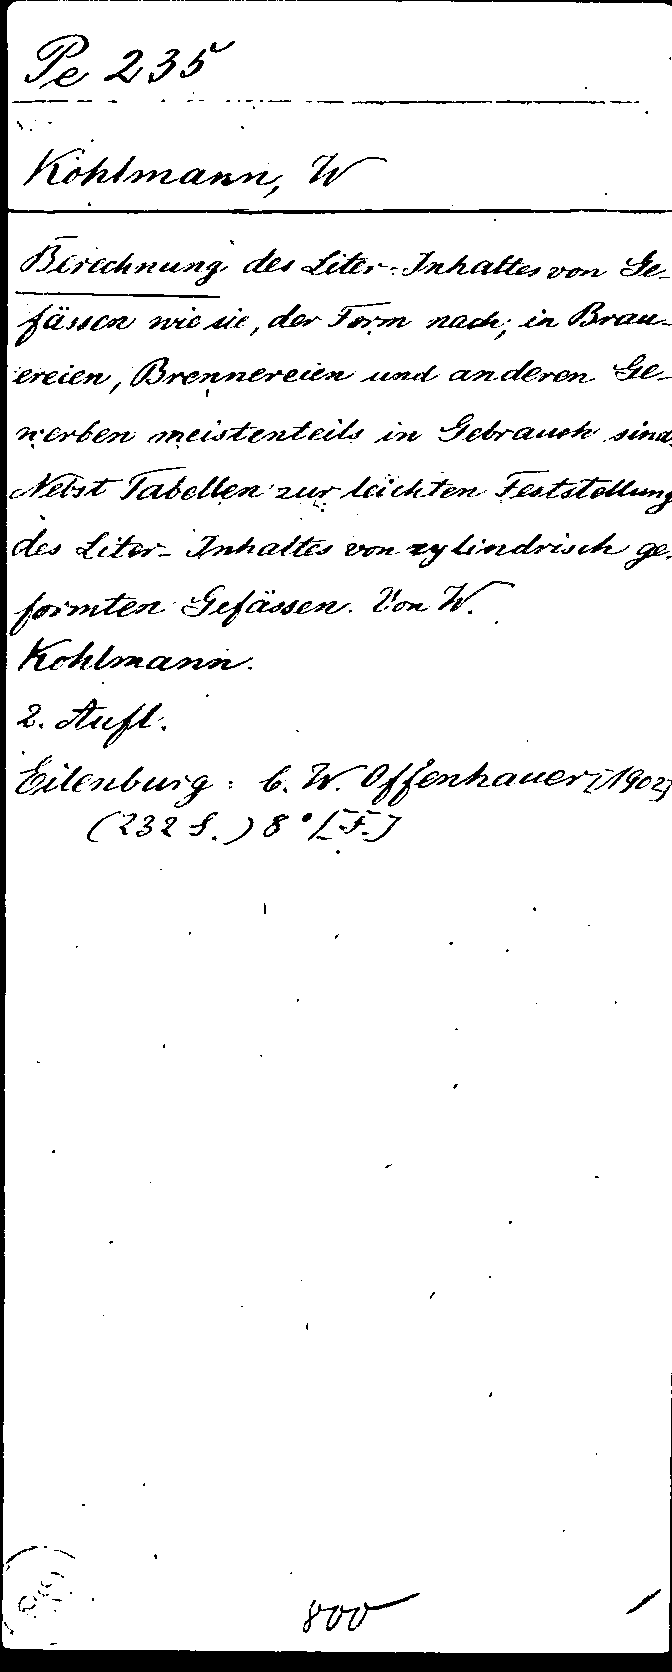 Pe 235
Kohlmann, W
Berechnung des Liter-Inhaltes von Ge-
fässen wie sie, der Form nach, in Brau-
ereien, Brennereien und anderen Ge-
werben meistenteils in Gebrauch sind.
Nebst Tabellen zur leichten Feststellung
des Liter-Inhaltes von zylindrisch ge-
formten Gefässen. Von W.
Kohlmann.
2. Aufl.
Eilenburg: C. W. Offenhauer [1902]
(232 S.) 8° [F.]
800